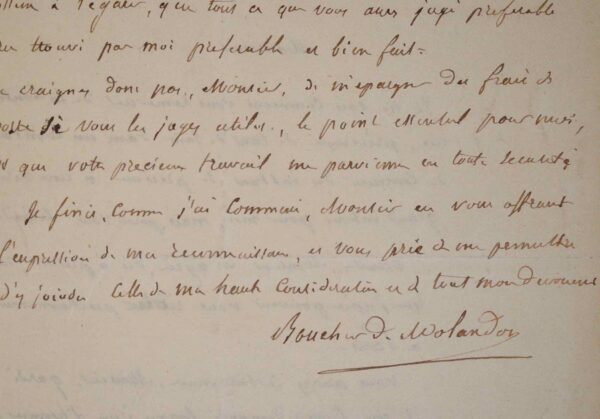 à l'égard, que tout ce que vous aurez jugé préférable
trouvé par moi préférable et bien fait=
craignez donc pas, Monsieur, de m'épargner des frais de
poste si vous les jugez utiles, le point essentiel pour moi,
que votre precieux travail me parvienne en toute sécurité
Je finis, comme j'ai commencé, Monsieur en vous offrant
l'expression de ma reconnaissance, et vous prie de me permettre
d'y joindre celle de ma haute considération et de tout mon dévouement
Boucher de Molandon